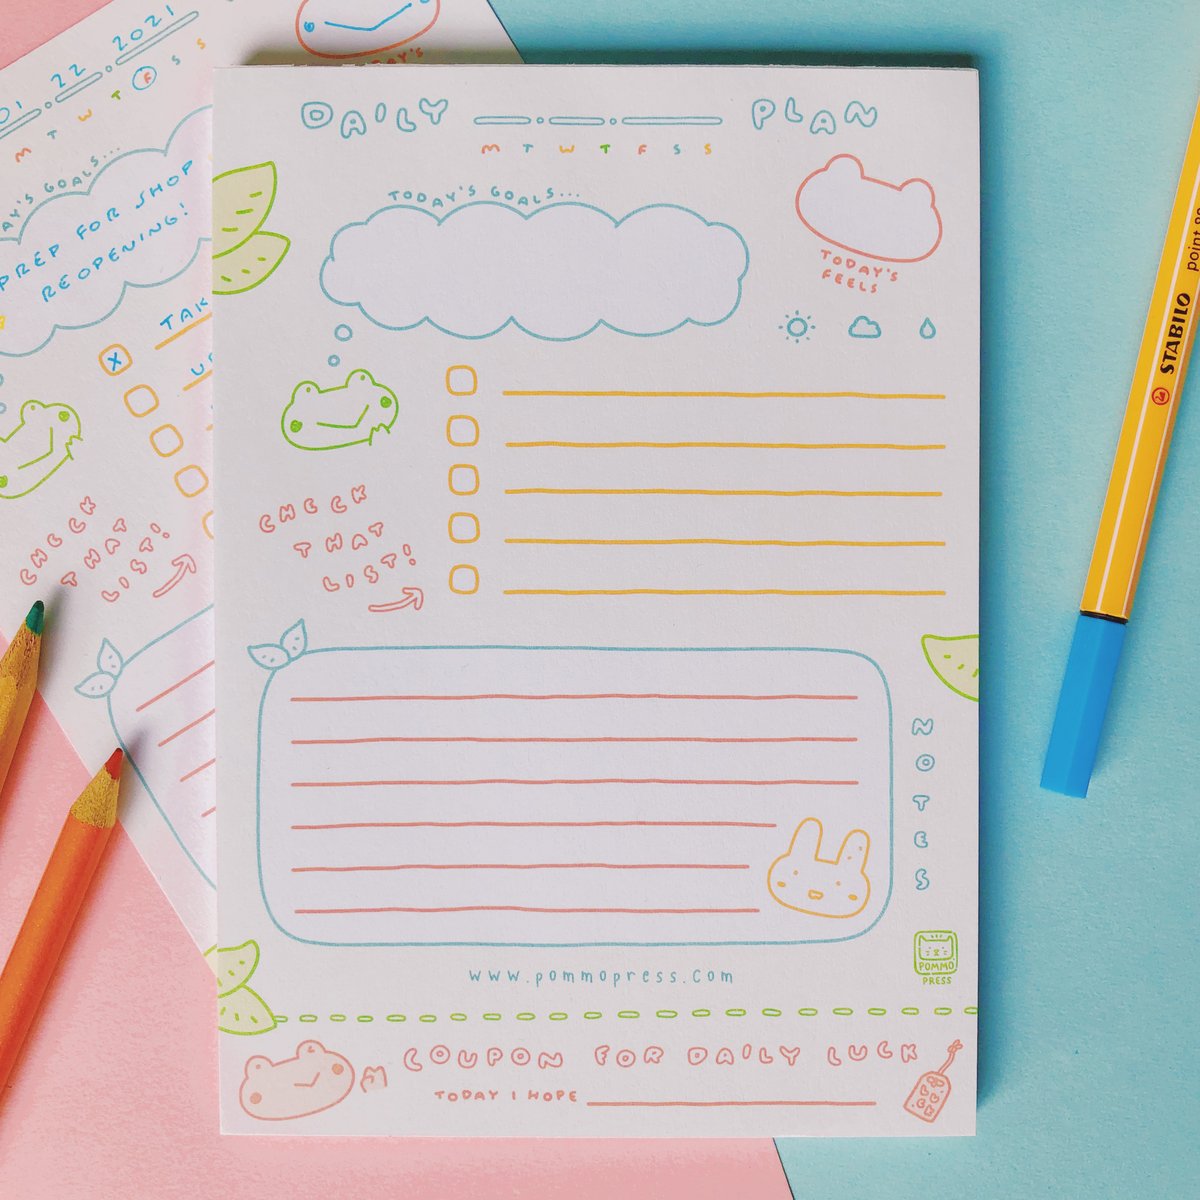 DAILY PLAN
M T W T F S S
TODAY'S GOALS...
TODAY'S
FEELS
CHECK
THAT
LIST!
NOTES
POMMO
PRESS
www.pommopress.com
COUPON FOR DAILY LUCK
TODAY I HOPE
01 22 2021
M T W T F S S
TODAY'S
GOALS...
PREP FOR SHOP
REOPENING!
X
CHECK
THAT
LIST!
STABILO
point